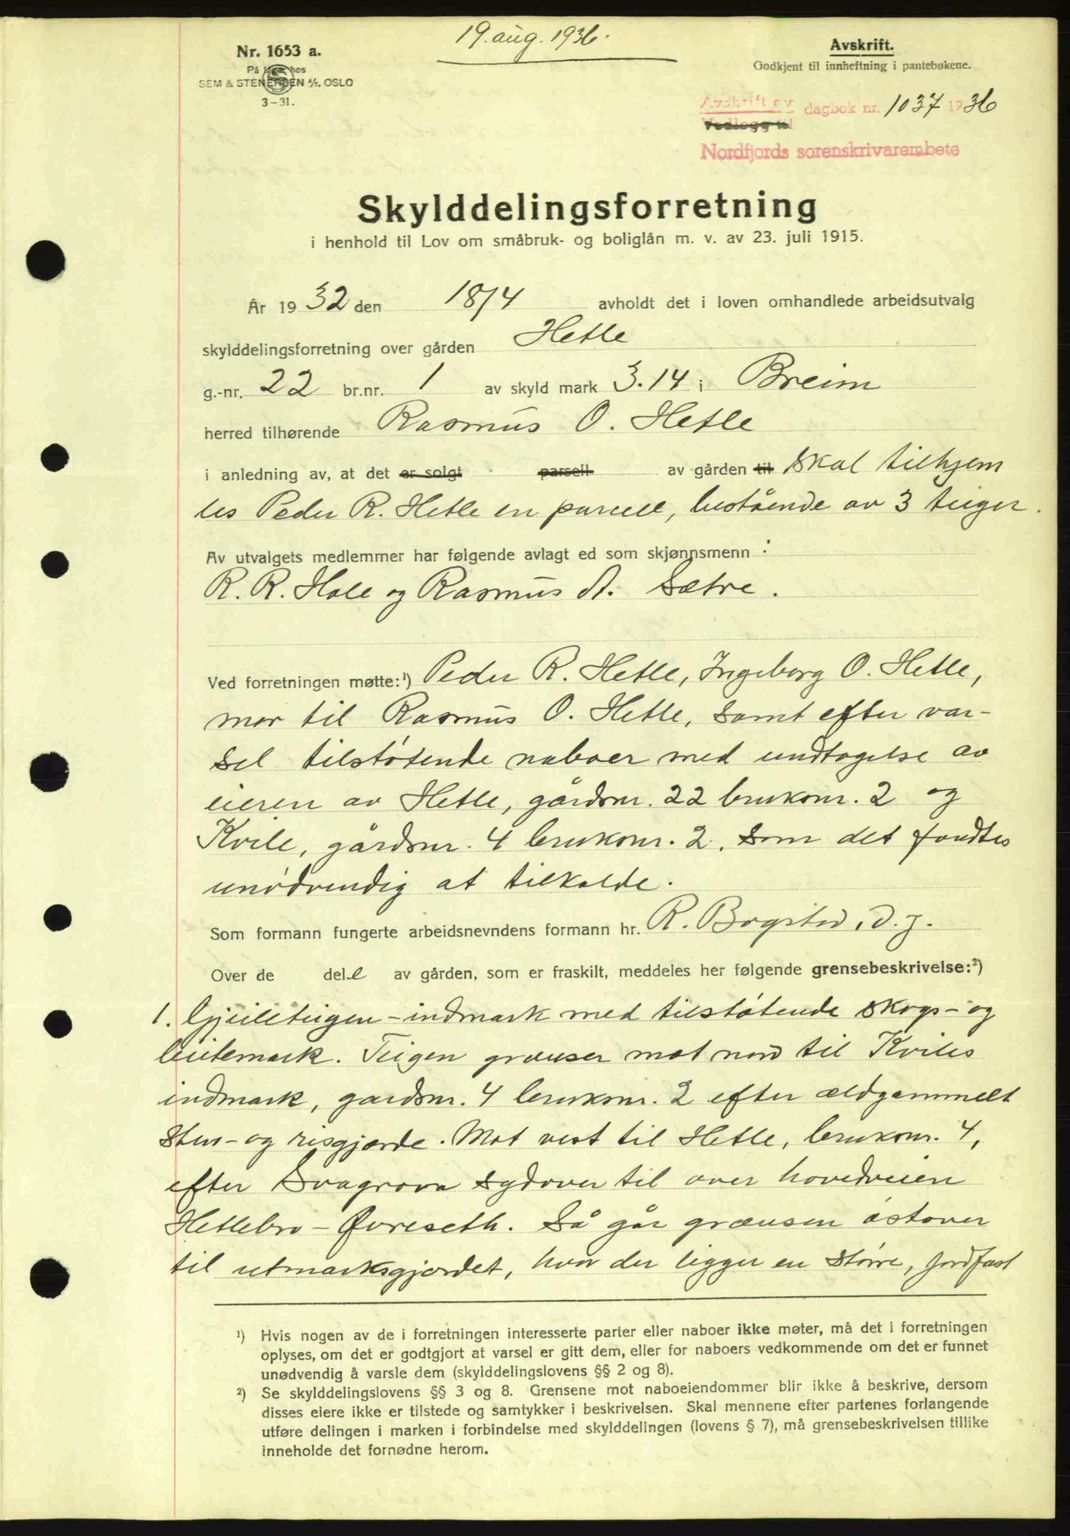 19. aug. 1936.
Nr. 1653 a.
På lager hos
SEM & STENERSEN A/S, OSLO
3-31.
Avskrift.
Godkjent til innheftning i pantebøkene.
Avskrift av dagbok nr. 1037 1936
Vedlegg til
Nordfjords sorenskrivarembete
Skylddelingsforretning
i henhold til Lov om småbruk- og boliglån m. v. av 23. juli 1915.
År 1932 den 18/4 avholdt det i loven omhandlede arbeidsutvalg
skylddelingsforretning over gården Hetle
g.-nr. 22 br.nr. 1 av skyld mark 3.14 i Breim
herred tilhørende Rasmus O. Hetle
i anledning av, at det er solgt parsell av gården til skal tilhjem
les Peder R. Hetle en parcell, bestående av 3 teiger.
Av utvalgets medlemmer har følgende avlagt ed som skjønnsmenn :
R. R. Hole og Rasmus A. Sætre.
Ved forretningen møtte:¹) Peder R. Hetle, Ingeborg O. Hetle,
mor til Rasmus O. Hetle, samt efter var-
sel tilstøtende naboer med undtagelse av
eieren av Hetle, gårdsnr. 22 bruksnr. 2 og
Kvile, gårdsnr. 4 bruksnr. 2, som det fandtes
unødvendig at tilkalde.
Som formann fungerte arbeidsnevndens formann hr. R. Bogstad, d.y.
Over de dele av gården, som er fraskilt, meddeles her følgende grensebeskrivelse:²)
1. Gjeileteigen - indmark med tilstøtende skogs- og
beitemark. Teigen grænser mot nord til Kviles
indmark, gardsnr. 4 bruksnr. 2 efter ældgammelt
sten- og risgjærde. Mot vest til Hetle, bruksnr. 4,
efter Svagrova sydover til over hovedveien
Hetlebro - Øvreseth. Så går grænsen østover
til utmarksgjerdet, hvor der ligger en større, jordfast
¹) Hvis nogen av de i forretningen interesserte parter eller naboer ikke møter, må det i forretningen
oplyses, om det er godtgjort at varsel er gitt dem, eller for naboers vedkommende om det er funnet
unødvendig å varsle dem (skylddelingslovens §§ 2 og 8).
²) Se skylddelingslovens §§ 3 og 8. Grensene mot naboeiendommer blir ikke å beskrive, dersom
disses eiere ikke er tilstede og samtykker i beskrivelsen. Skal mennene efter partenes forlangende
utføre delingen i marken i forbindelse med skylddelingen (lovens § 7), må grensebeskrivelsen tillike
inneholde det fornødne herom.